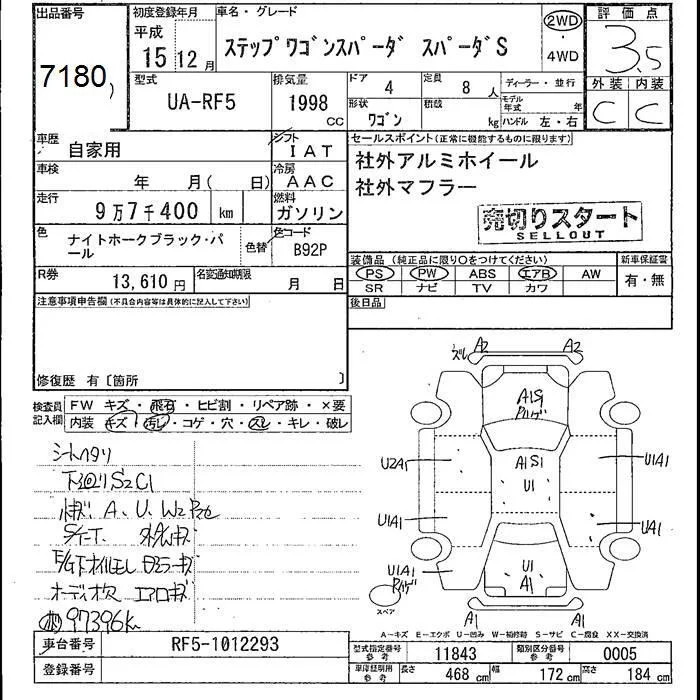 出品番号
7180
初度登録年月
平成
15年12月
車名・グレード
ステップワゴンスパーダ スパーダS
2WD
・
4WD
評価点
3.5
外装 内装
C C
型式
UA-RF5
排気量
1998 CC
ドア
4
定員
8 人
形状
ワゴン
積載
kg
ディーラー・並行
モデル年式 年
ハンドル 左・右
車歴
自家用
シフト
IAT
車検
年 月( 日)
冷房
AAC
走行
9万7千400 km
燃料
ガソリン
色
ナイトホークブラック・パール
色替
色コード
B92P
R券
13,610円
名変通知期限
月 日
セールスポイント(正常に機能するものに限ります)
社外アルミホイール
社外マフラー
売切りスタート
SELLOUT
装備品(純正品に限り○をつけてください)
新車保証書
PS PW ABS エアB AW
SR ナビ TV カワ
有・無
後日品
注意事項申告欄(不具合内容等は具体的に記入して下さい)
修復歴 有〔箇所 〕
検査員記入欄
FW キズ・飛石・ヒビ割・リペア跡・×要
内装 キズ・汚レ・コゲ・穴・スレ・キレ・破レ
シートヘタリ
下廻りS2C1
A、U、W2
オーディオ欠 エアロキズ
97396K
ズレ A2 A2
A1S1
U2A1
A1S1
U1
U1A1
U1A1
UA1
U1A1
U1
A1
スペア
A1 A1
A-キズ E-エクボ U-凹み W-補修跡 S-サビ C-腐食 XX-交換済
車台番号
RF5-1012293
登録番号
型式指定番号参考
11843
類別区分番号参考
0005
車庫証明用参考
長さ 468 cm
幅 172 cm
高さ 184 cm